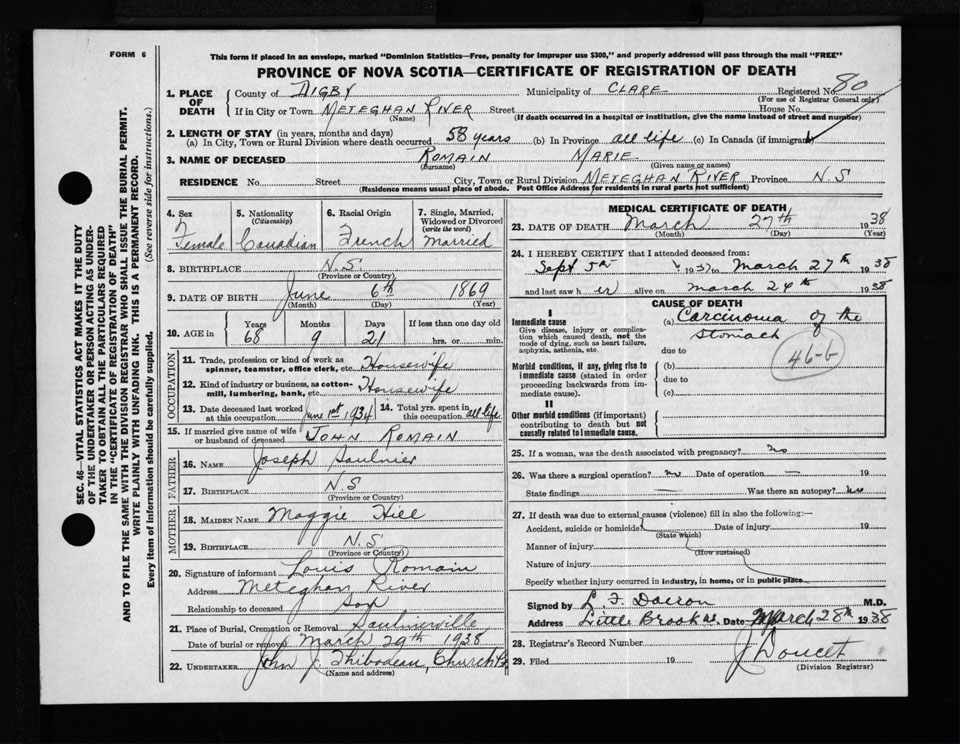 FORM 6
This form if placed in an envelope, marked "Dominion Statistics—Free, penalty for improper use $300," and properly addressed will pass through the mail "FREE"
PROVINCE OF NOVA SCOTIA—CERTIFICATE OF REGISTRATION OF DEATH
SEC. 46—VITAL STATISTICS ACT MAKES IT THE DUTY
OF THE UNDERTAKER OR PERSON ACTING AS UNDER-
TAKER TO OBTAIN ALL THE PARTICULARS REQUIRED
IN THE "CERTIFICATE OF REGISTRATION OF DEATH"
AND TO FILE THE SAME WITH THE DIVISION REGISTRAR WHO SHALL ISSUE THE BURIAL PERMIT.
WRITE PLAINLY WITH UNFADING INK. THIS IS A PERMANENT RECORD.
Every item of information should be carefully supplied. (See reverse side for instructions.)
1. PLACE OF DEATH County of DIGBY Municipality of CLARE Registered No. 80
(For use of Registrar General only)
If in City or Town METEGHAN RIVER Street House No.
(Name) (If death occurred in a hospital or institution, give the name instead of street and number)
2. LENGTH OF STAY (in years, months and days)
(a) In City, Town or Rural Division where death occurred 58 years (b) In Province all life (c) In Canada (if immigrant)
3. NAME OF DECEASED ROMAIN MARIE
(Surname) (Given name or names)
RESIDENCE No. Street City, Town or Rural Division METEGHAN RIVER Province N S
(Residence means usual place of abode. Post Office Address for residents in rural parts not sufficient)
4. Sex Female
5. Nationality (Citizenship) Canadian
6. Racial Origin French
7. Single, Married, Widowed or Divorced (write the word) Married
8. BIRTHPLACE N.S.
(Province or Country)
9. DATE OF BIRTH June 6th 1869
(Month) (Day) (Year)
10. AGE in Years 68 Months 9 Days 21 If less than one day old hrs. or min.
OCCUPATION
11. Trade, profession or kind of work as spinner, teamster, office clerk, etc. Housewife
12. Kind of industry or business, as cotton-mill, lumbering, bank, etc. Housewife
13. Date deceased last worked at this occupation June 1st 1934
14. Total yrs. spent in this occupation all life
15. If married give name of wife or husband of deceased JOHN ROMAIN
FATHER
16. NAME Joseph Saulnier
17. BIRTHPLACE N.S
(Province or Country)
MOTHER
18. MAIDEN NAME Maggie Hill
19. BIRTHPLACE N.S
(Province or Country)
20. Signature of informant Louis Romain
Address Meteghan River
Relationship to deceased Son
21. Place of Burial, Cremation or Removal Saulnierville
Date of burial or removal March 29th 1938
22. UNDERTAKER John J. Thibodeau, Church Pt
(Name and address)
MEDICAL CERTIFICATE OF DEATH
23. DATE OF DEATH March 27th 1938
(Month) (Day) (Year)
24. I HEREBY CERTIFY that I attended deceased from
Sept 5th 1937 to March 27th 1938
and last saw her alive on March 24th 1938
CAUSE OF DEATH
I
Immediate cause
Give disease, injury or complication which caused death, not the mode of dying, such as heart failure, asphyxia, asthenia, etc.
(a) Carcinoma of the Stomach
46-b
due to
Morbid conditions, if any, giving rise to immediate cause (stated in order proceeding backwards from immediate cause).
(b)
due to
(c)
II
Other morbid conditions (if important) contributing to death but not causally related to immediate cause.
25. If a woman, was the death associated with pregnancy? no
26. Was there a surgical operation? no Date of operation — 19
State findings — Was there an autopsy? no
27. If death was due to external causes (violence) fill in also the following:—
Accident, suicide or homicide? Date of injury 19
(State which)
Manner of injury
(How sustained)
Nature of injury
Specify whether injury occurred in industry, in home, or in public place
Signed by L. F. Doiron M.D.
Address Little Brook NS. Date March 28th 1938
28. Registrar's Record Number
29. Filed 19 J Doucet
(Division Registrar)